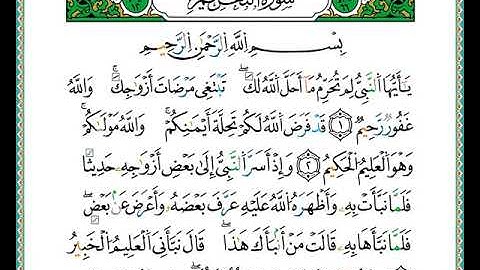 سورة التحريم
بِسْمِ اللَّهِ الرَّحْمَٰنِ الرَّحِيمِ
يَا أَيُّهَا النَّبِيُّ لِمَ تُحَرِّمُ مَا أَحَلَّ اللَّهُ لَكَ ۖ تَبْتَغِي مَرْضَاتَ أَزْوَاجِكَ ۚ وَاللَّهُ
غَفُورٌ رَّحِيمٌ ١ قَدْ فَرَضَ اللَّهُ لَكُمْ تَحِلَّةَ أَيْمَانِكُمْ ۚ وَاللَّهُ مَوْلَاكُمْ ۖ
وَهُوَ الْعَلِيمُ الْحَكِيمُ ٢ وَإِذْ أَسَرَّ النَّبِيُّ إِلَىٰ بَعْضِ أَزْوَاجِهِ حَدِيثًا
فَلَمَّا نَبَّأَتْ بِهِ وَأَظْهَرَهُ اللَّهُ عَلَيْهِ عَرَّفَ بَعْضَهُ وَأَعْرَضَ عَن بَعْضٍ ۖ
فَلَمَّا نَبَّأَهَا بِهِ قَالَتْ مَنْ أَنبَأَكَ هَٰذَا ۖ قَالَ نَبَّأَنِيَ الْعَلِيمُ الْخَبِيرُ